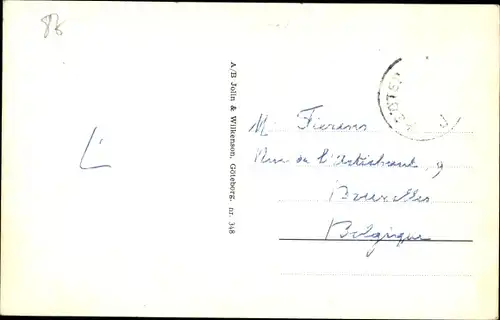 A/B Jolin & Wilkenson, Göteborg. nr. 348
M. Fierens
Rue de l'Artichaut, 9
Bruxelles
Belgique